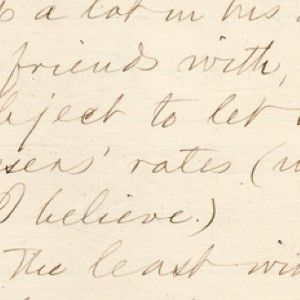 a lot in his
friends with,
bject to let
sers' rates (
I believe.)
The least wit